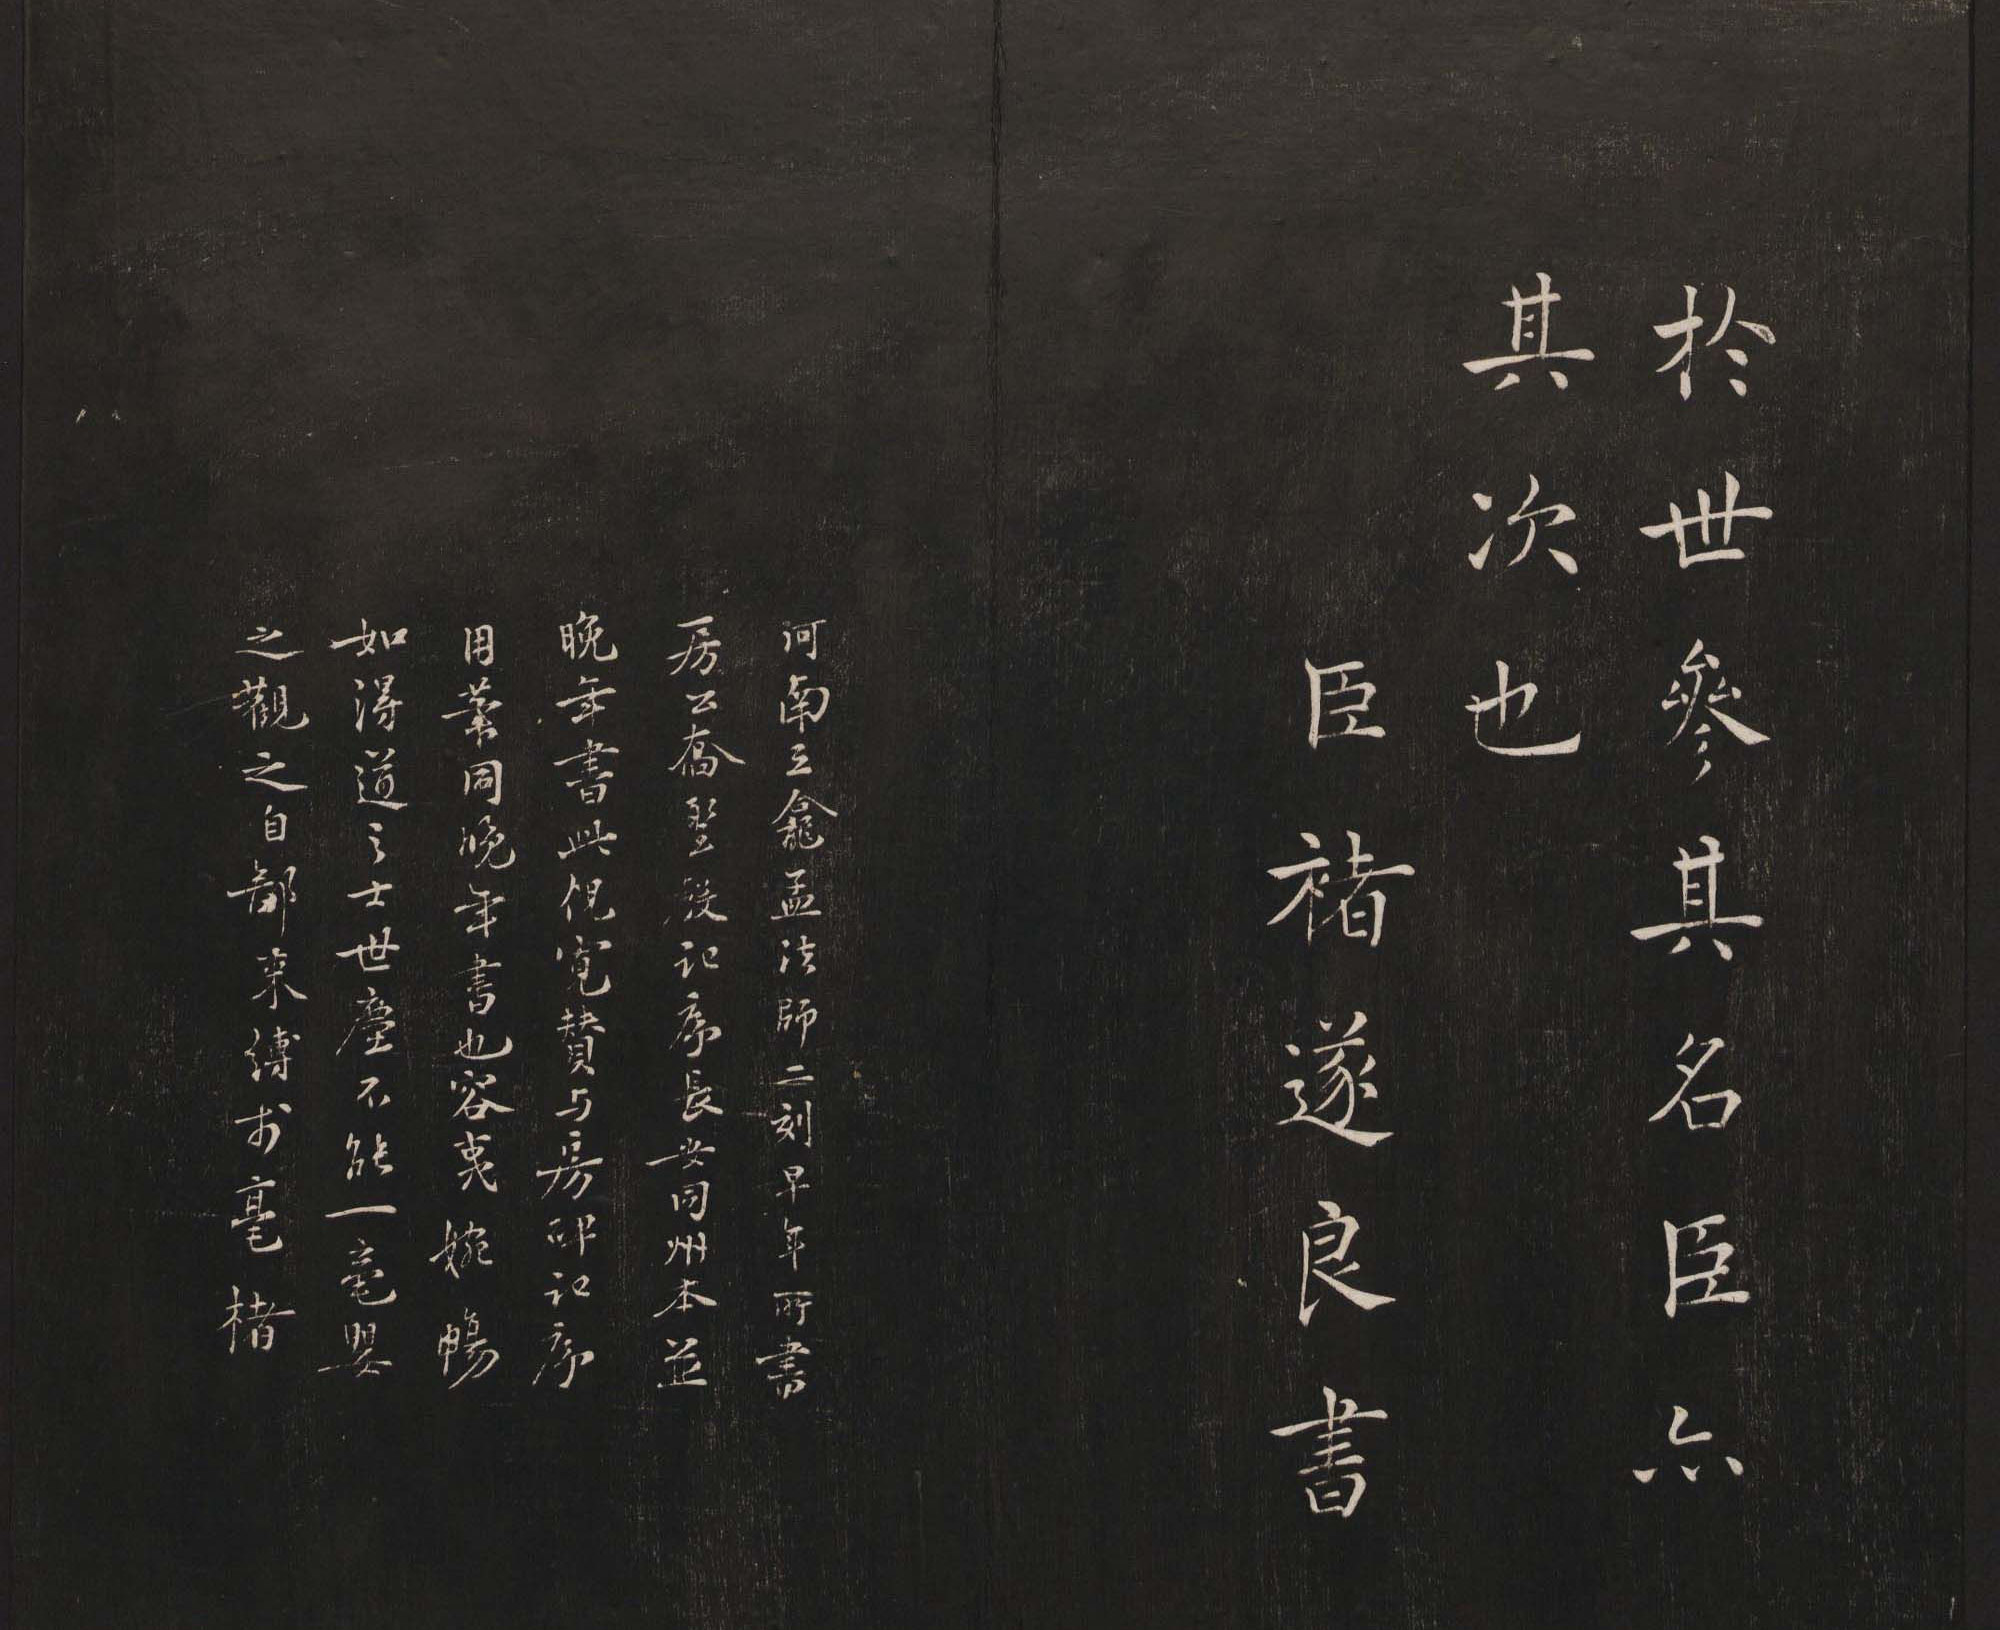 於世參其名臣亦
其次也
臣褚遂良書
河南三龕孟法師二刻早年所書
房公喬聖教記序長安同州本並
晚年書此倪寬贊与房碑記序
用筆同晚年書也容夷婉暢
如得道之士世塵不能一毫嬰
之觀之自鄙束縛於毫楮